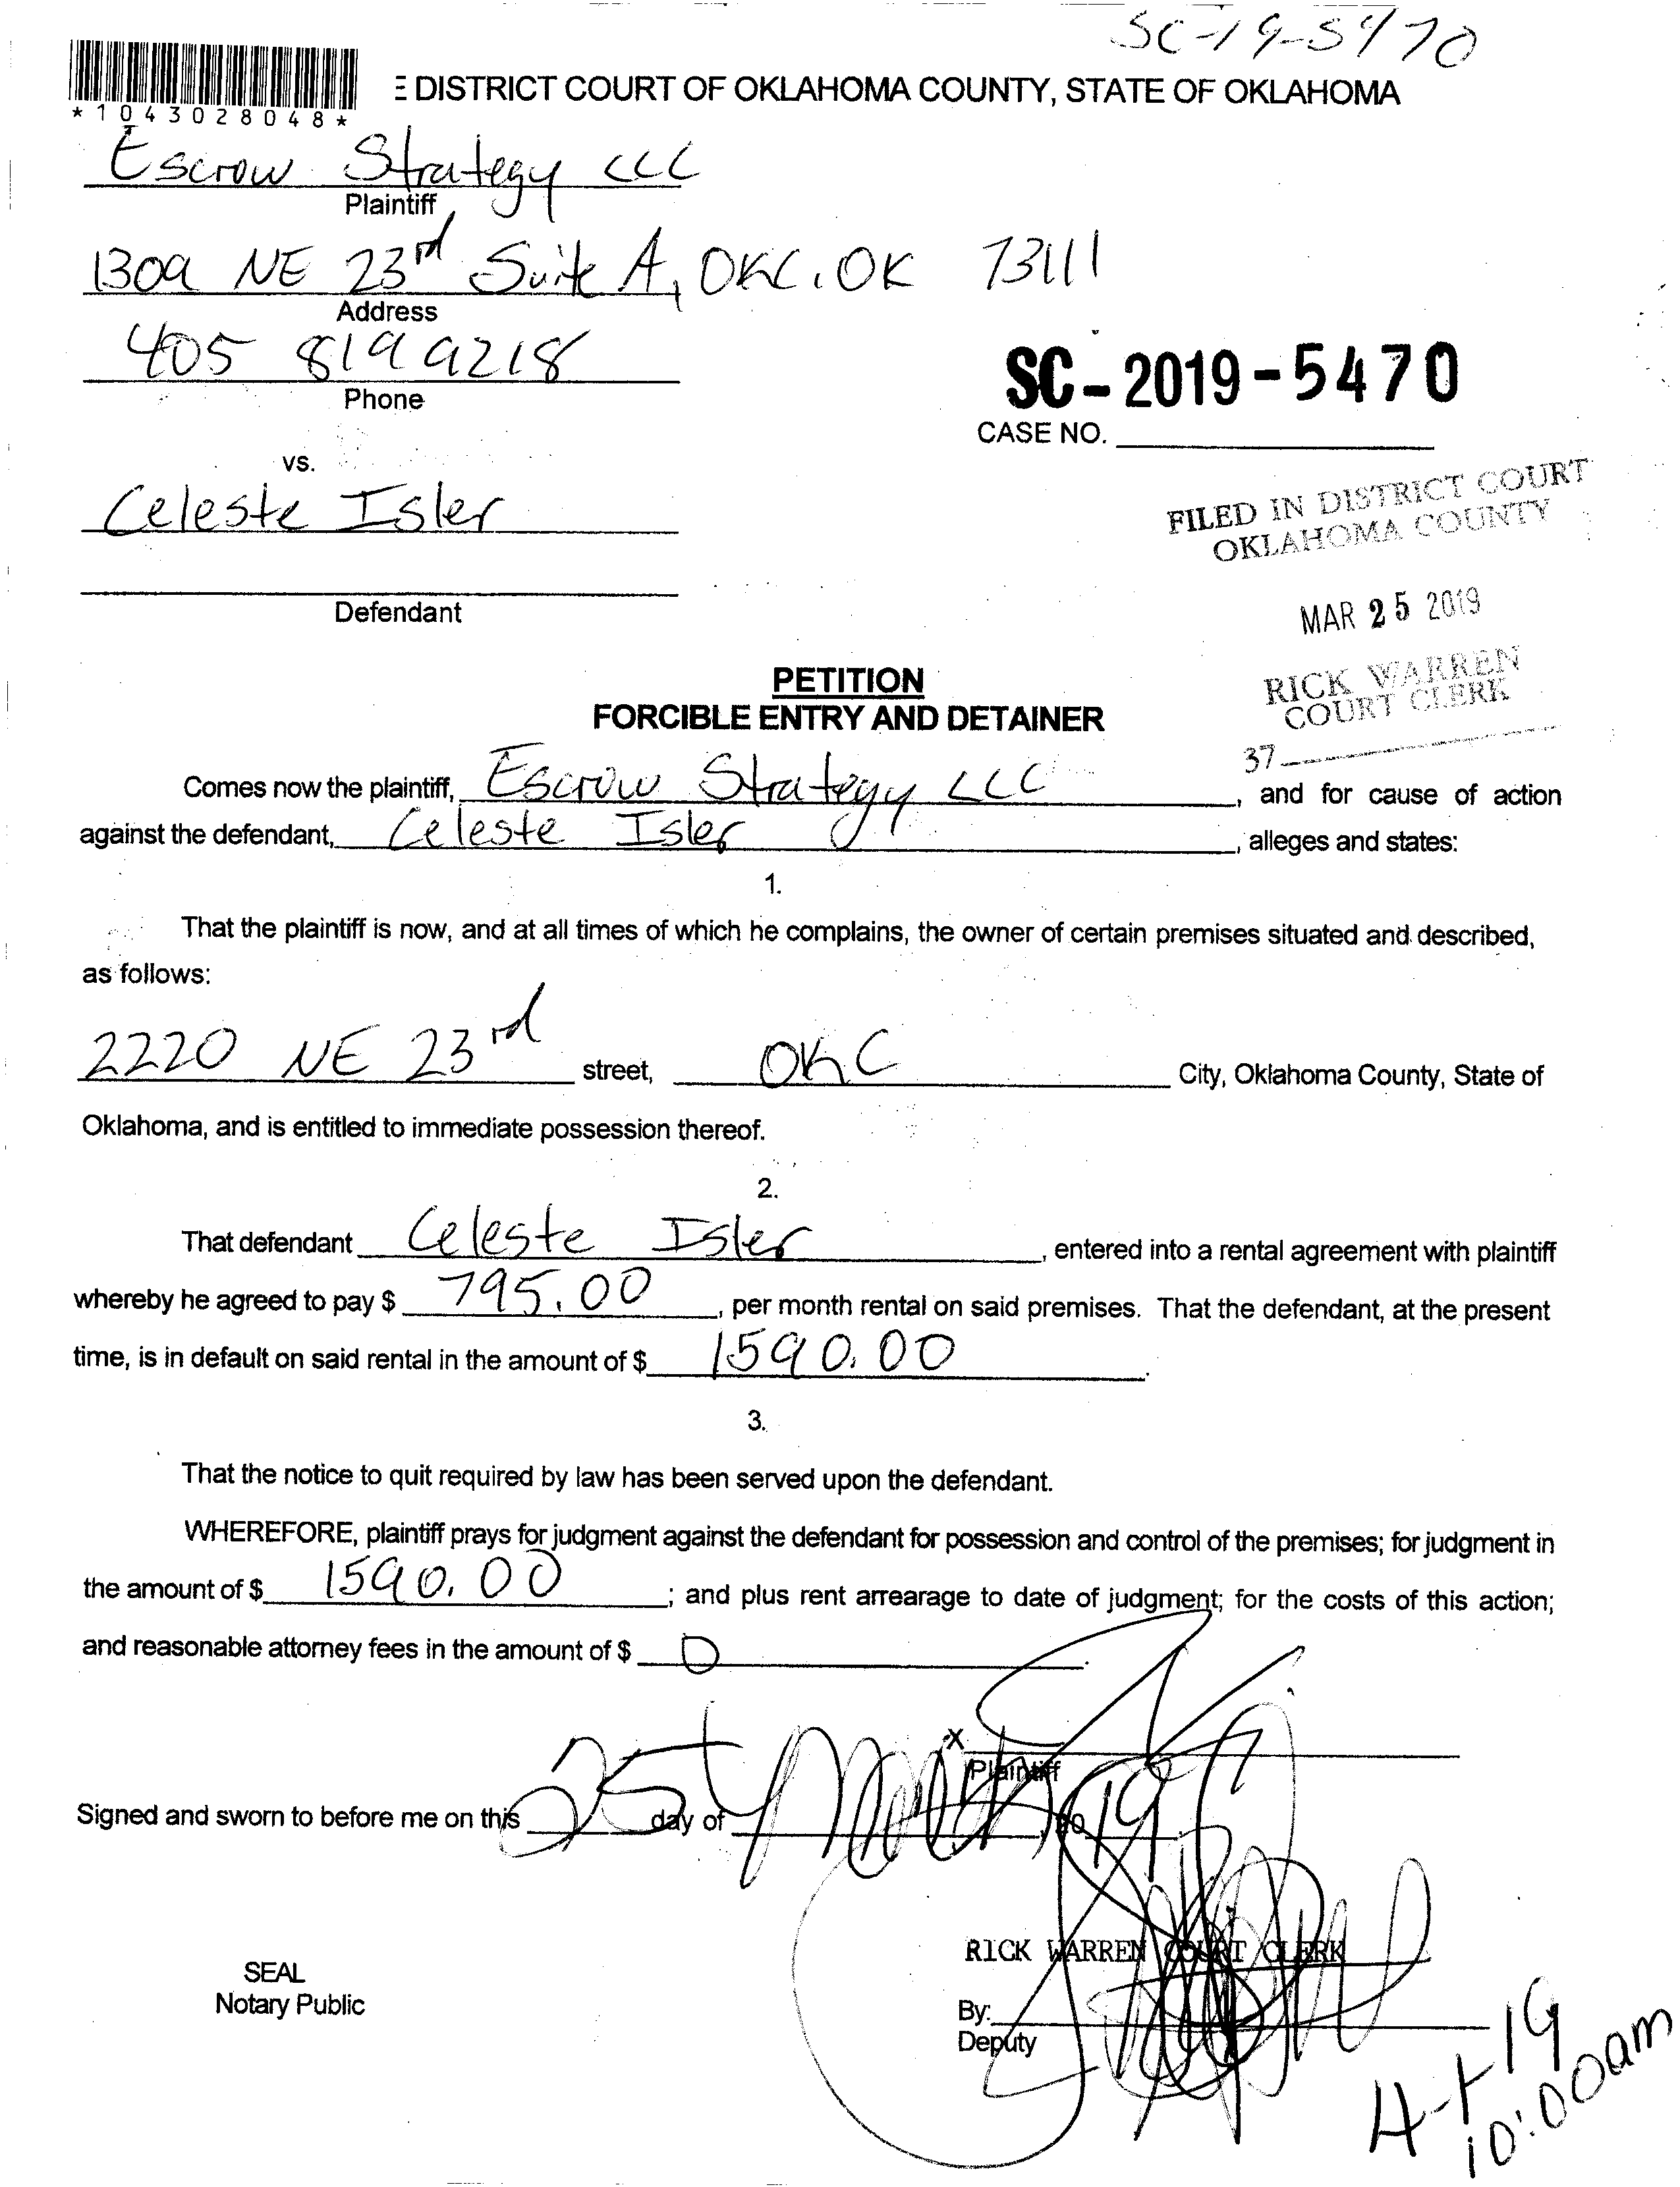 SC-19-5470
*1043028048*
E DISTRICT COURT OF OKLAHOMA COUNTY, STATE OF OKLAHOMA
Escrow Strategy LLC
Plaintiff
1309 NE 23rd Suite A, OKC, OK 73111
Address
405 819 9218
Phone
SC-2019-5470
CASE NO.
vs.
Celeste Isler
FILED IN DISTRICT COURT
OKLAHOMA COUNTY
Defendant
MAR 25 2019
PETITION
FORCIBLE ENTRY AND DETAINER
RICK WARREN
COURT CLERK
37
Comes now the plaintiff, Escrow Strategy LLC, and for cause of action
against the defendant, Celeste Isler, alleges and states:
1.
That the plaintiff is now, and at all times of which he complains, the owner of certain premises situated and described,
as follows:
2220 NE 23rd street, OKC City, Oklahoma County, State of
Oklahoma, and is entitled to immediate possession thereof.
2.
That defendant Celeste Isler, entered into a rental agreement with plaintiff
whereby he agreed to pay $ 795.00, per month rental on said premises. That the defendant, at the present
time, is in default on said rental in the amount of $ 1590.00.
3.
That the notice to quit required by law has been served upon the defendant.
WHEREFORE, plaintiff prays for judgment against the defendant for possession and control of the premises; for judgment in
the amount of $ 1590.00; and plus rent arrearage to date of judgment; for the costs of this action;
and reasonable attorney fees in the amount of $ 0.
X
Plaintiff
Signed and sworn to before me on this 25 day of March, 2019
RICK WARREN COURT CLERK
SEAL
Notary Public
By:
Deputy
4-1-19
10:00am